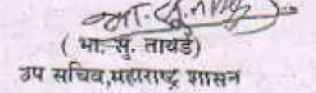 ( भा. सु. तायडे)
उप सचिव,महाराष्ट्र शासन